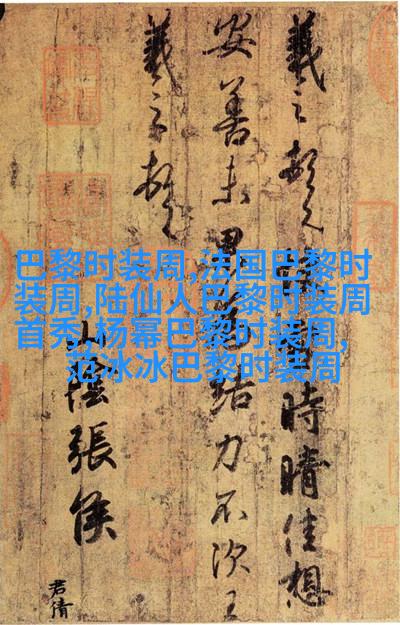 巴黎时装周,法国巴黎时
装周,陆仙人巴黎时装周
首秀,杨幂巴黎时装周,
范冰冰巴黎时装周
羲之頓首時晴佳想
安善未果結力不次王
羲之頓首
山陰張侯
君倩